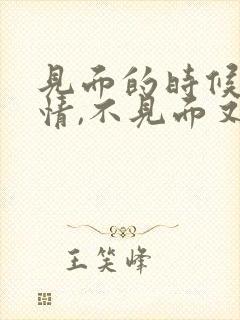 見面的時候
情,不見面又
王笑峰